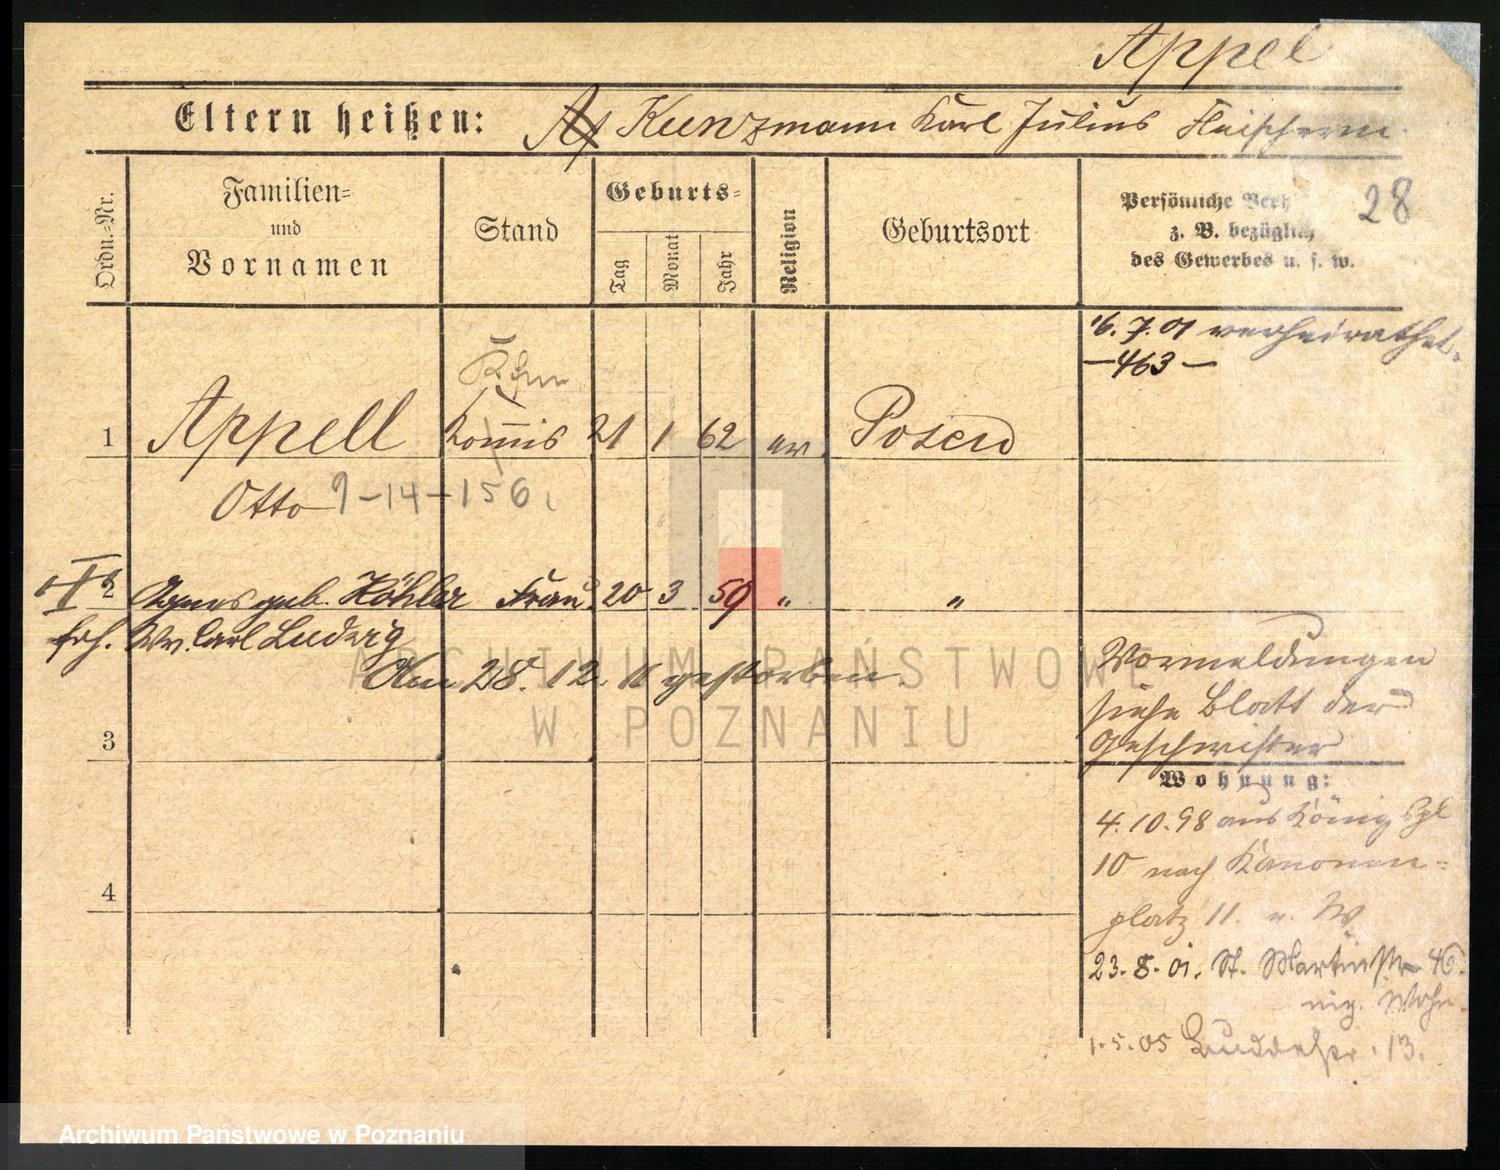 Appel
Eltern heißen: Kunzmann Karl Julius
Ordn.-Nr.
Familien-
und
Vornamen
Stand
Geburts-
Tag
Monat
Jahr
Religion
Geburtsort
Persönliche
z. B. bezüglich
des Gewerbes u. s. w.
28
16. 7. 01 verheirathet.
— 463 —
1 Appell Kommis 21 1 62 ev. Posen
Otto 9-14-156.
2 Agnes geb. Köhler Frau 20 3 59 " "
frh. Ww. Carl Ludwig
Am 28. 12. 11 gestorben.
ARCHIWUM PAŃSTWOWE
W POZNANIU
3
Vormeldungen
siehe Blatt der
Geschwister
Wohnung:
4. 10. 98 aus Königspl
10 nach Kanonen-
platz 11. u. W
4
23. 8. 01. St. Martinstr 46.
eig. Wohn.
1. 5. 05 Buddestr. 13.
Archiwum Państwowe w Poznaniu